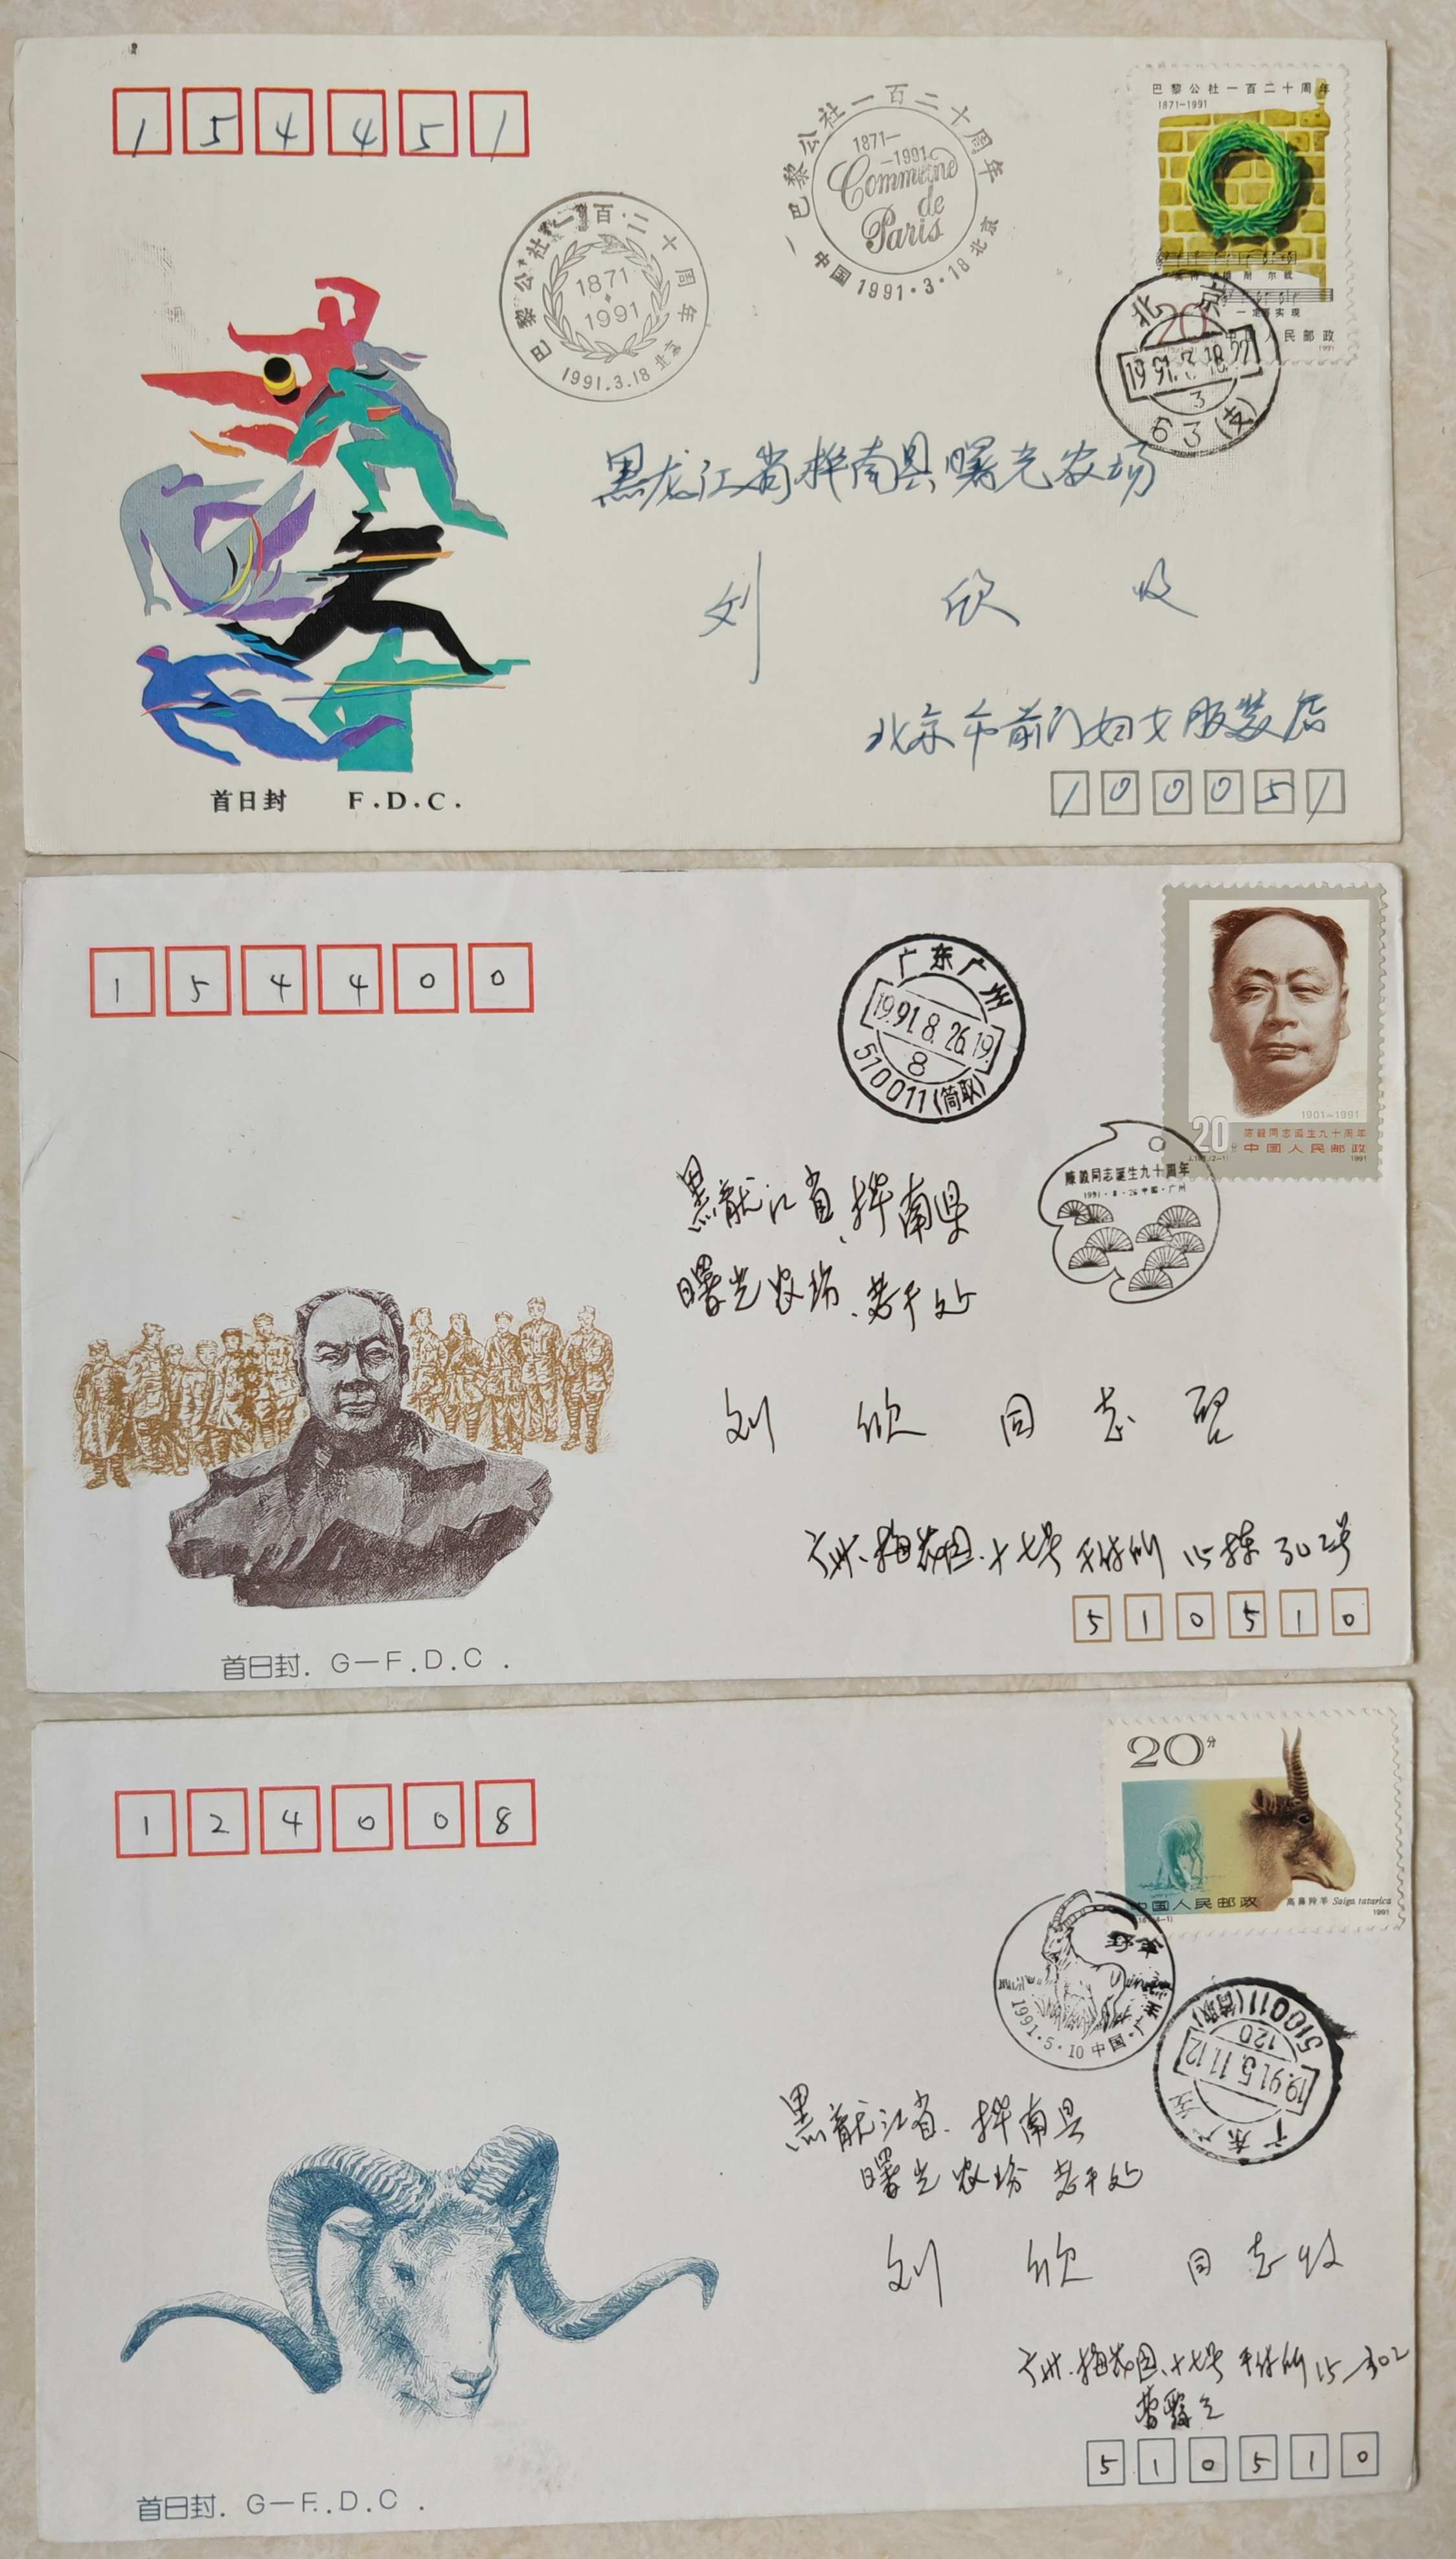 154451
巴黎公社一百二十周年
1871-
-1991
Commune
de
Paris
中国1991·3·18北京
巴黎公社一百二十周年
1871-1991
20
中国人民邮政
1991
巴黎公社一百二十周年
1871
1991
1991.3.18北京
北京
1991.3.18.22
3
63(支)
黑龙江省桦南县曙光农场
刘欣收
北京市前门妇女服装店
100051
首日封 F.D.C.
154400
广东广州
19.91.8.26.19.
8
510011(筒取)
1901-1991
20分
陈毅同志诞生九十周年
中国人民邮政
1991
陈毅同志诞生九十周年
1991·8·26中国·广州
黑龙江省、桦南县
曙光农场、老干处
刘欣同志启
广州、梅花园、十七号干休所15栋302号
510510
首日封. G-F.D.C.
124008
20分
中国人民邮政
高鼻羚羊 Saiga tatarica
1991
野羊
1991·5·10中国·广州
广东广州
19.91.5.11.12
120
510011(筒取)
黑龙江省.桦南县
曙光农场老干处
刘欣同志收
广州.梅花园、十七号干休所15-302
510510
首日封. G-F.D.C.